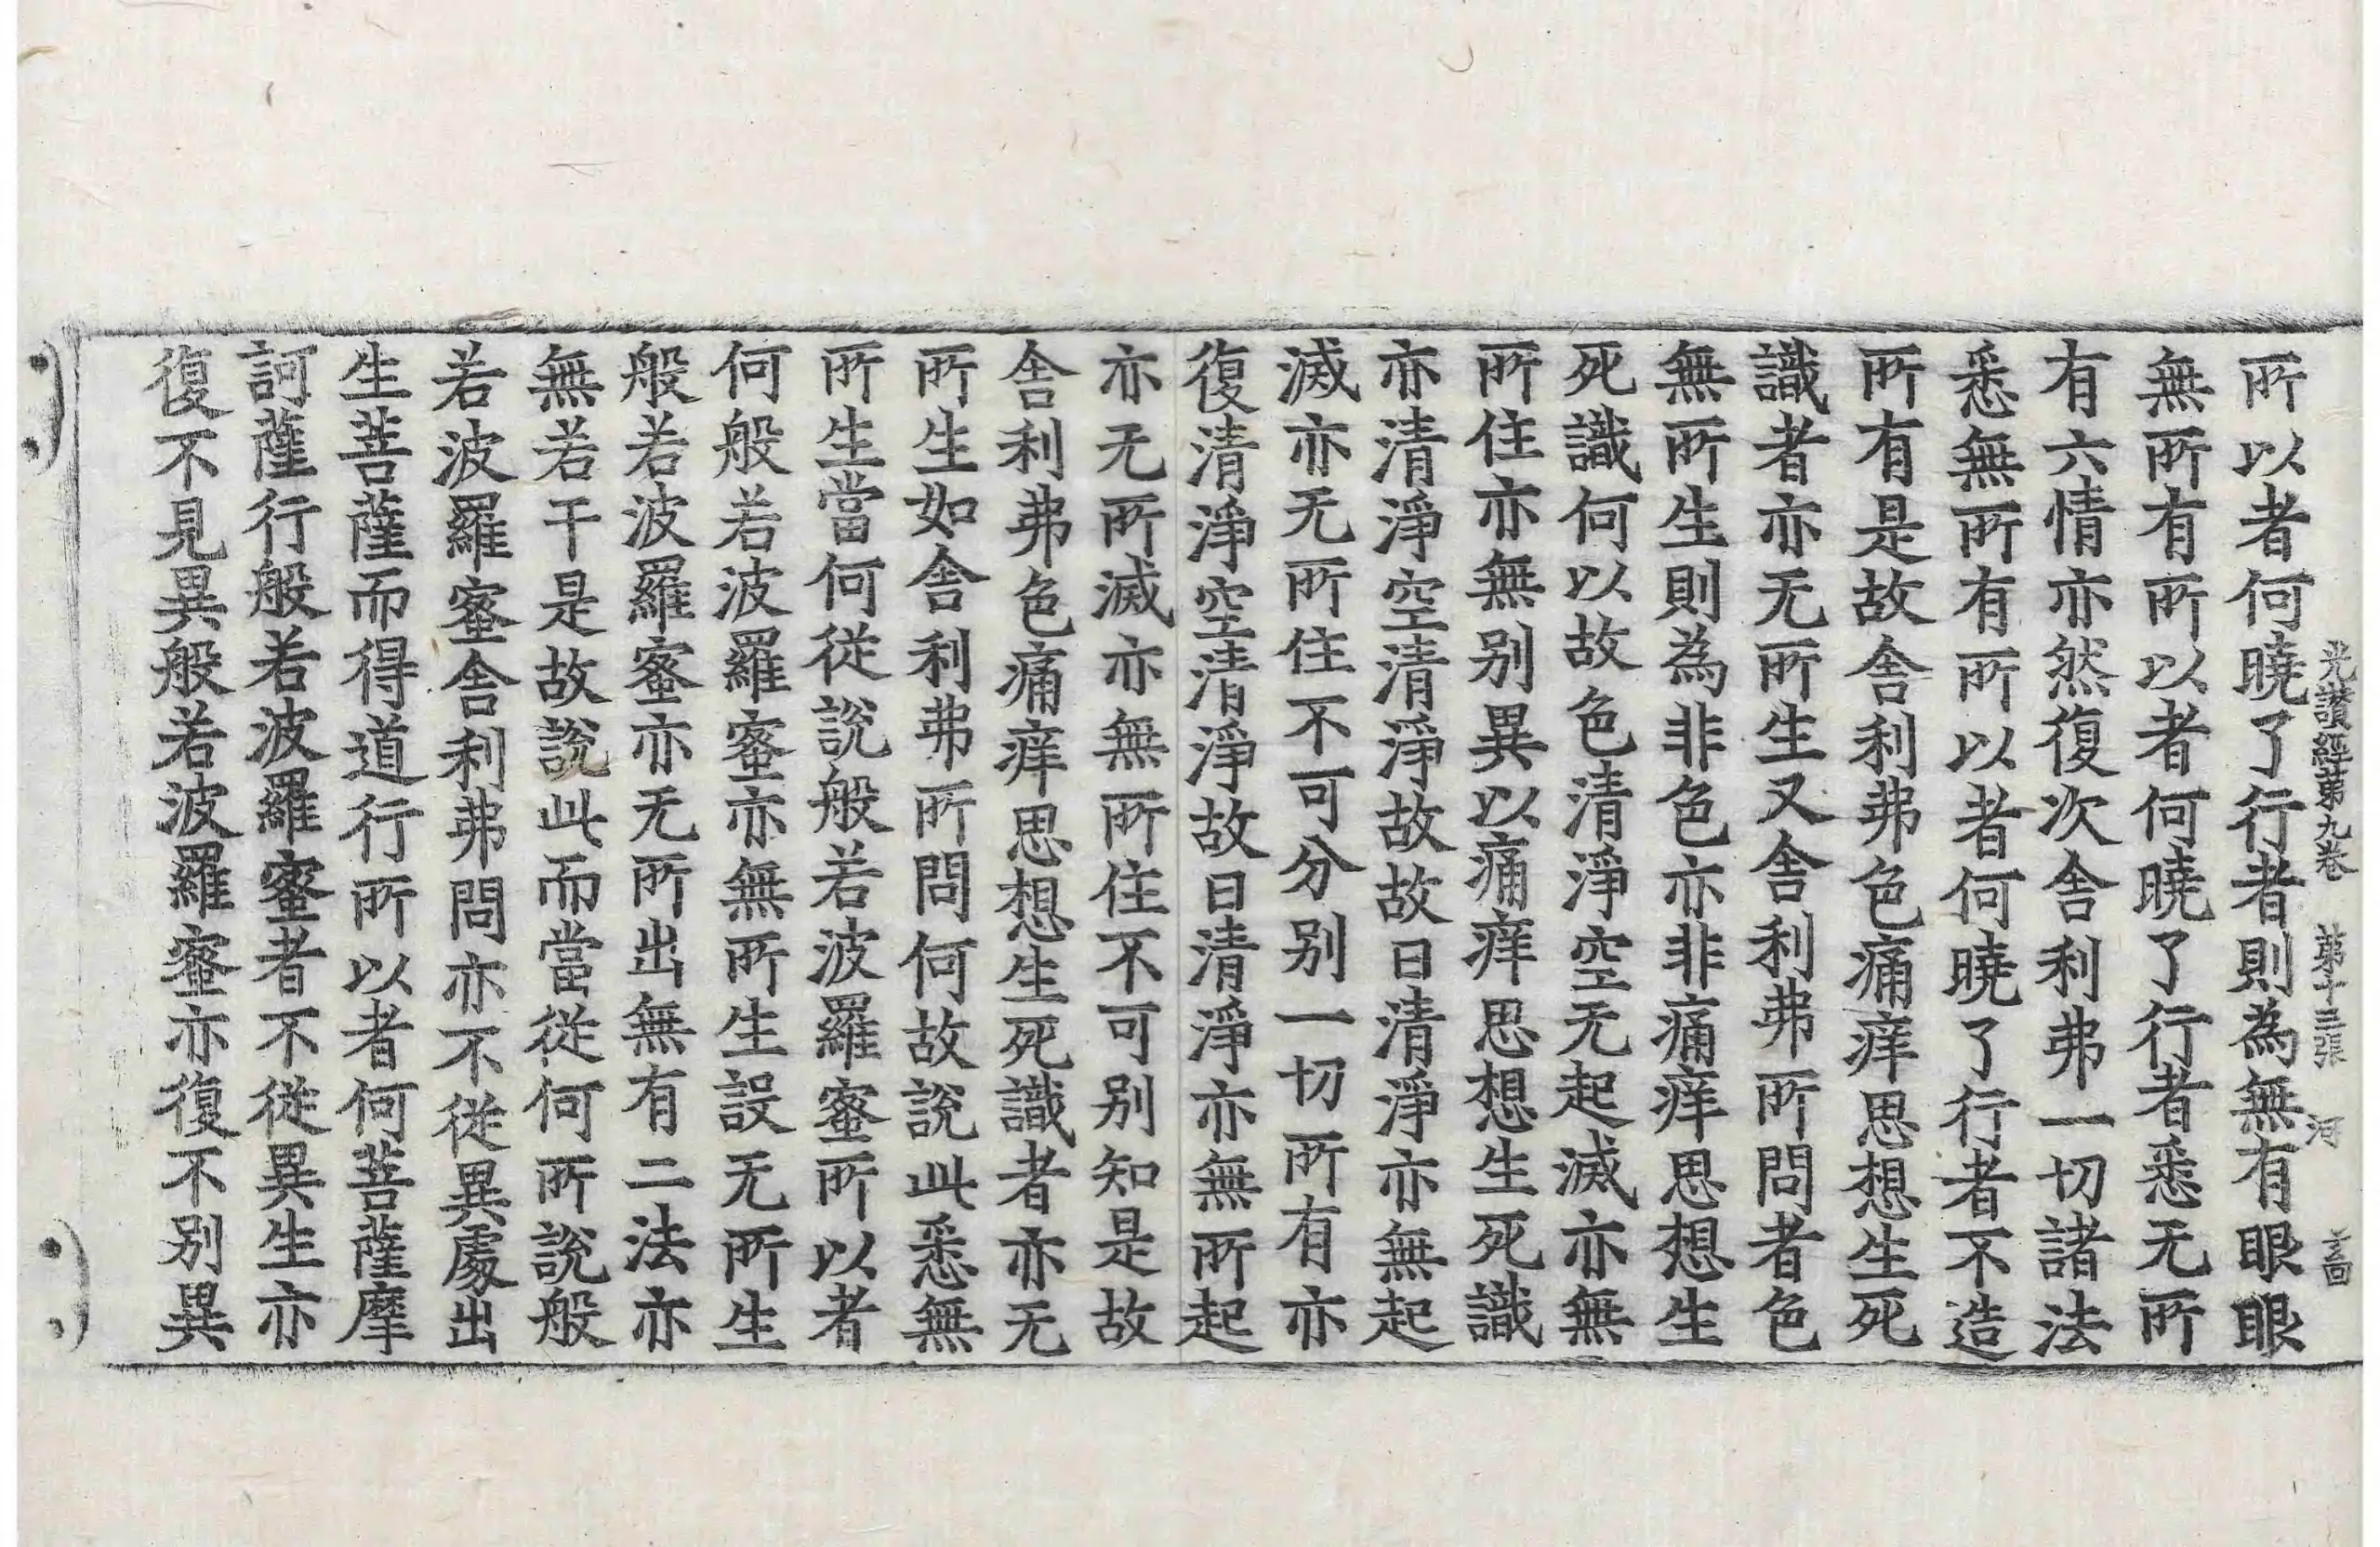 光讃經第九卷 第十三張 河
所以者何曉了行者則為無有眼眼
無所有所以者何曉了行者悉无所
有六情亦然復次舍利弗一切諸法
悉無所有所以者何曉了行者不造
所有是故舍利弗色痛痒思想生死
識者亦无所生又舍利弗所問者色
無所生則為非色亦非痛痒思想生
死識何以故色清淨空无起滅亦無
所住亦無別異以痛痒思想生死識
亦清淨空清淨故故曰清淨亦無起
滅亦无所住不可分別一切所有亦
復清淨空清淨故曰清淨亦無所起
亦无所滅亦無所住不可別知是故
舍利弗色痛痒思想生死識者亦无
所生如舍利弗所問何故說此悉無
所生當何從說般若波羅蜜所以者
何般若波羅蜜亦無所生設无所生
般若波羅蜜亦无所出無有二法亦
無若干是故說此而當從何所說般
若波羅蜜舍利弗問亦不從異處出
生菩薩而得道行所以者何菩薩摩
訶薩行般若波羅蜜者不從異生亦
復不見異般若波羅蜜亦復不別異